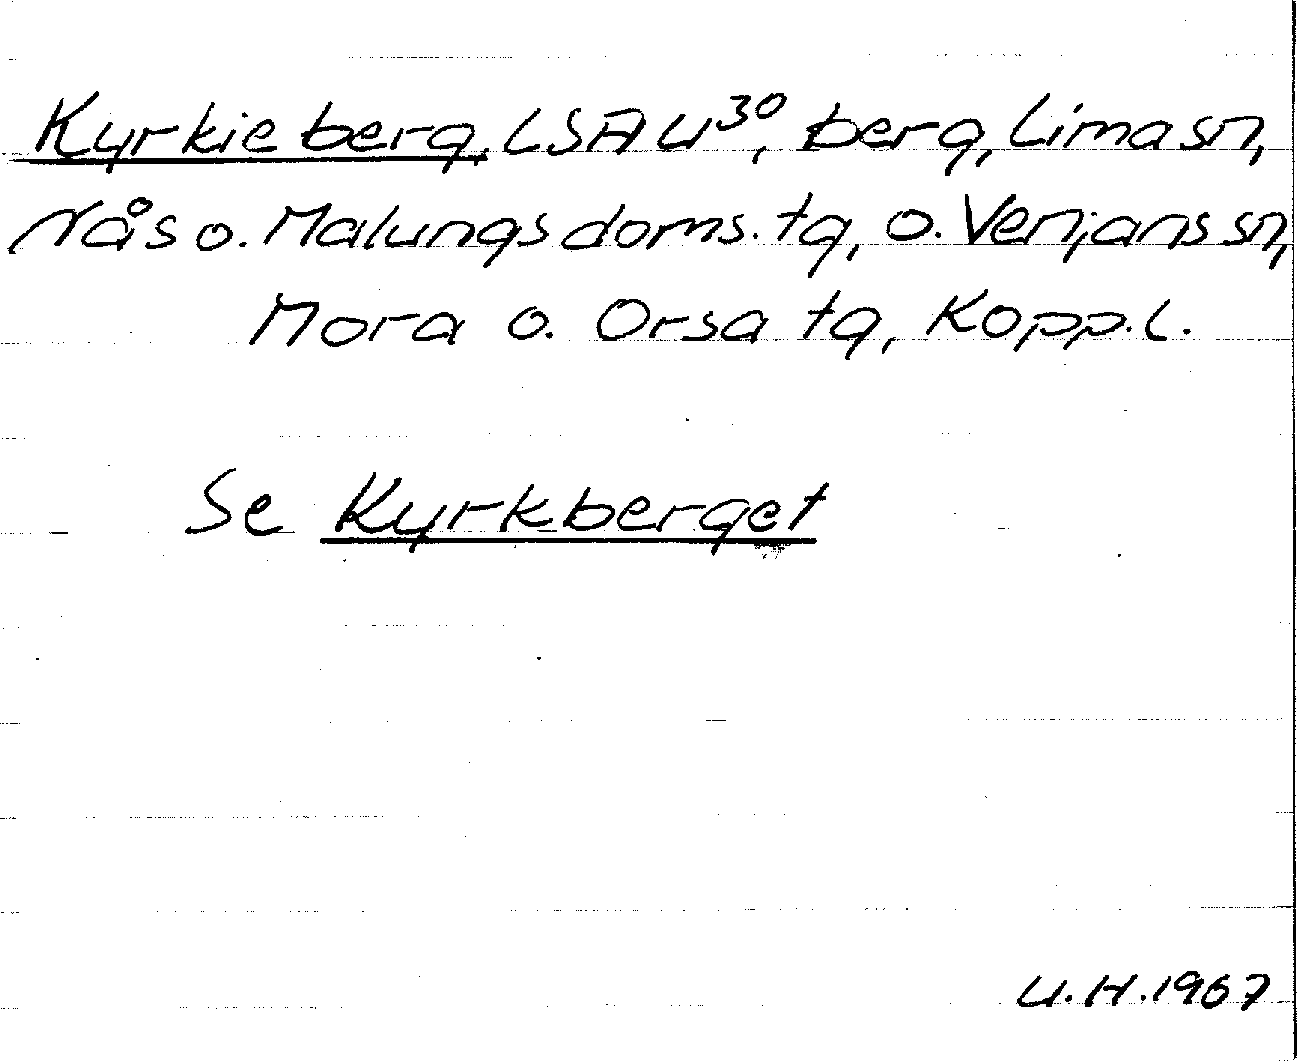 Kyrkie berg, LSA U³⁰, berg, Lima sn,
Nås o. Malungs doms. tg, o. Venjans sn,
Mora o. Orsa tg, Kopp. l.
Se Kyrkberget
U. H. 1967